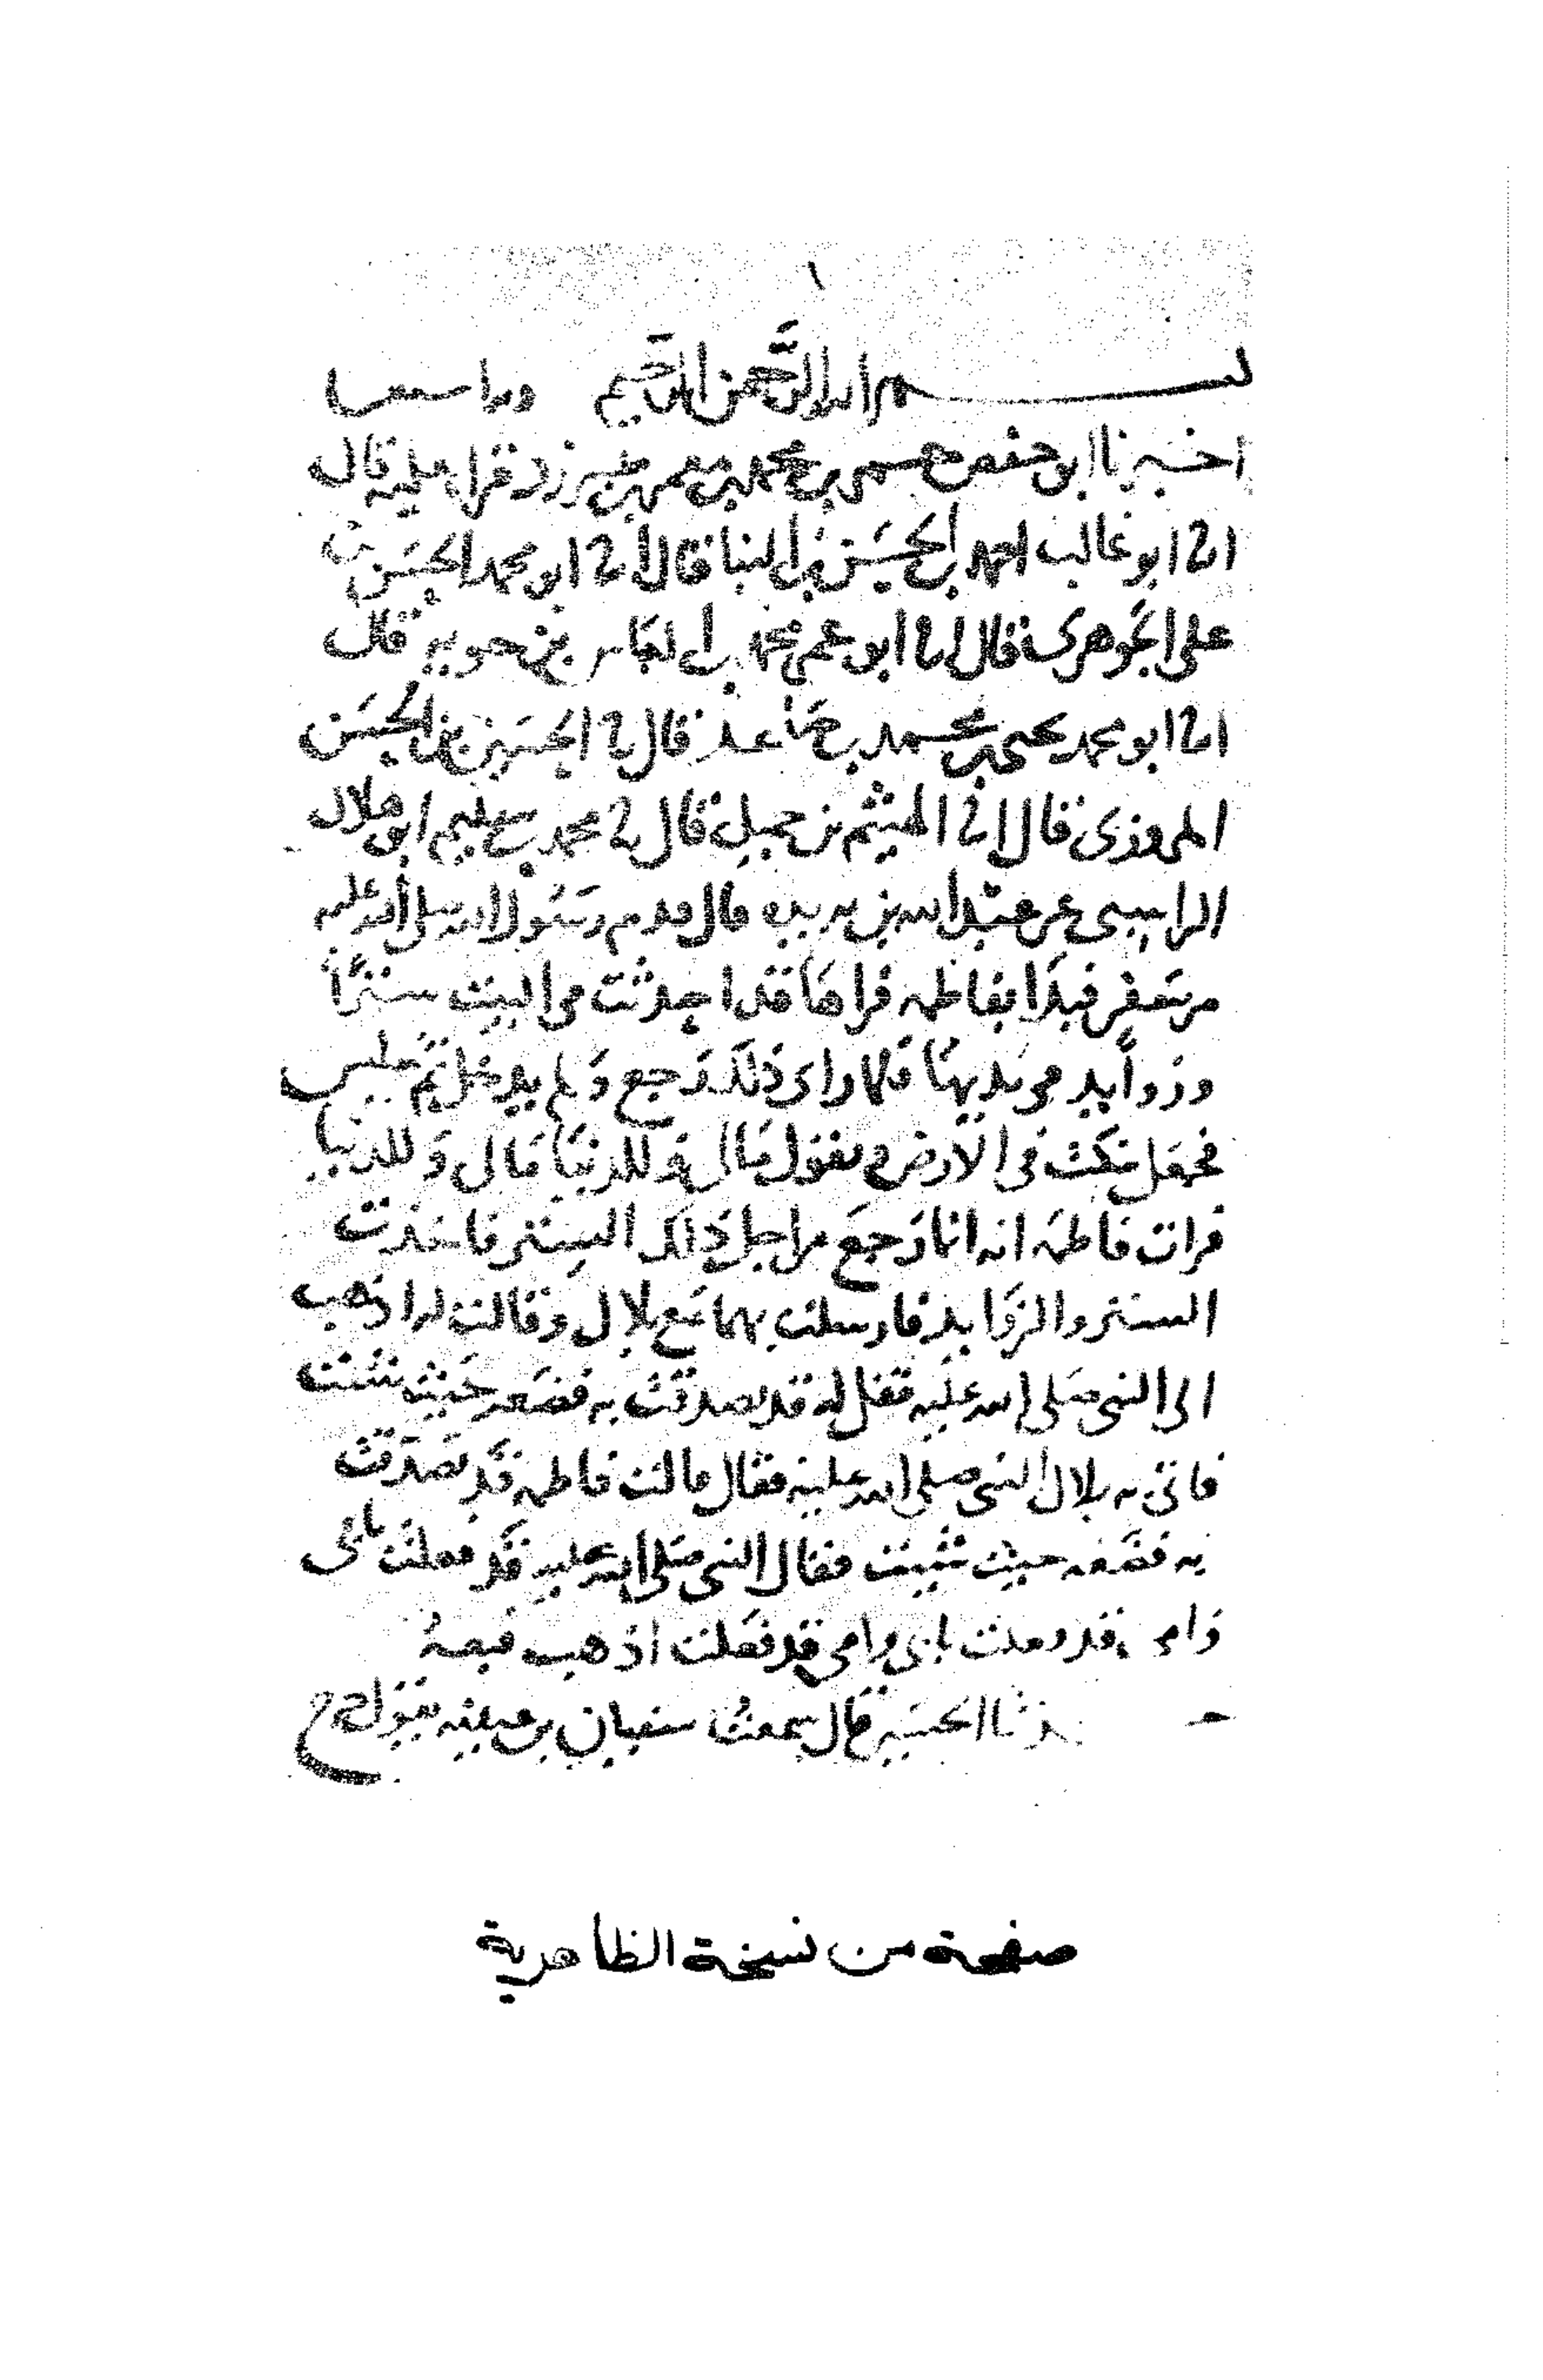 ١
بسم الله الرحمن الرحيم وبه استعين
اخبرنا ابو حفص عمر بن محمد بن معمر بن طبرزد قراة عليه قال
انا ابو غالب احمد بن الحسن بن البنا قال انا ابو محمد الحسن بن
على الجوهرى قال انا ابو عمر محمد بن العباس بن حيويه قال
انا ابو محمد يحيى بن محمد بن صاعد قال نا الحسين بن الحسن
المروزى قال انا الهيثم بن جميل قال نا محمد بن سليم ابو هلال
الراسبى عن عبد الله بن بريده قال قدم رسول الله صلى الله عليه
من سفر فبدا بفاطمه فراها قد احدثت فى البيت سترا
وزوايد فى يديها فلما راى ذلك رجع ولم يدخل ثم جلس
فجعل ينكت فى الارض ويقول مالى وللدنيا مالى وللدنيا
فرات فاطمه انه انما رجع من اجل ذلك الستر فاخذت
الستر والزوايد فارسلت بهما مع بلال وقالت له اذهب
الى النبى صلى الله عليه فقل له قد تصدقت به فضعه حيث شئت
فاتى به بلال النبى صلى الله عليه فقال قالت فاطمه قد تصدقت
به فضعه حيث شيت فقال النبى صلى الله عليه قد فعلت بابى
وامى قد فعلت بابى وامى قد فعلت اذهب فبعه
حدثنا الحسين قال سمعت سفيان بن عيينه يقول
صفحة من نسخة الظاهرية